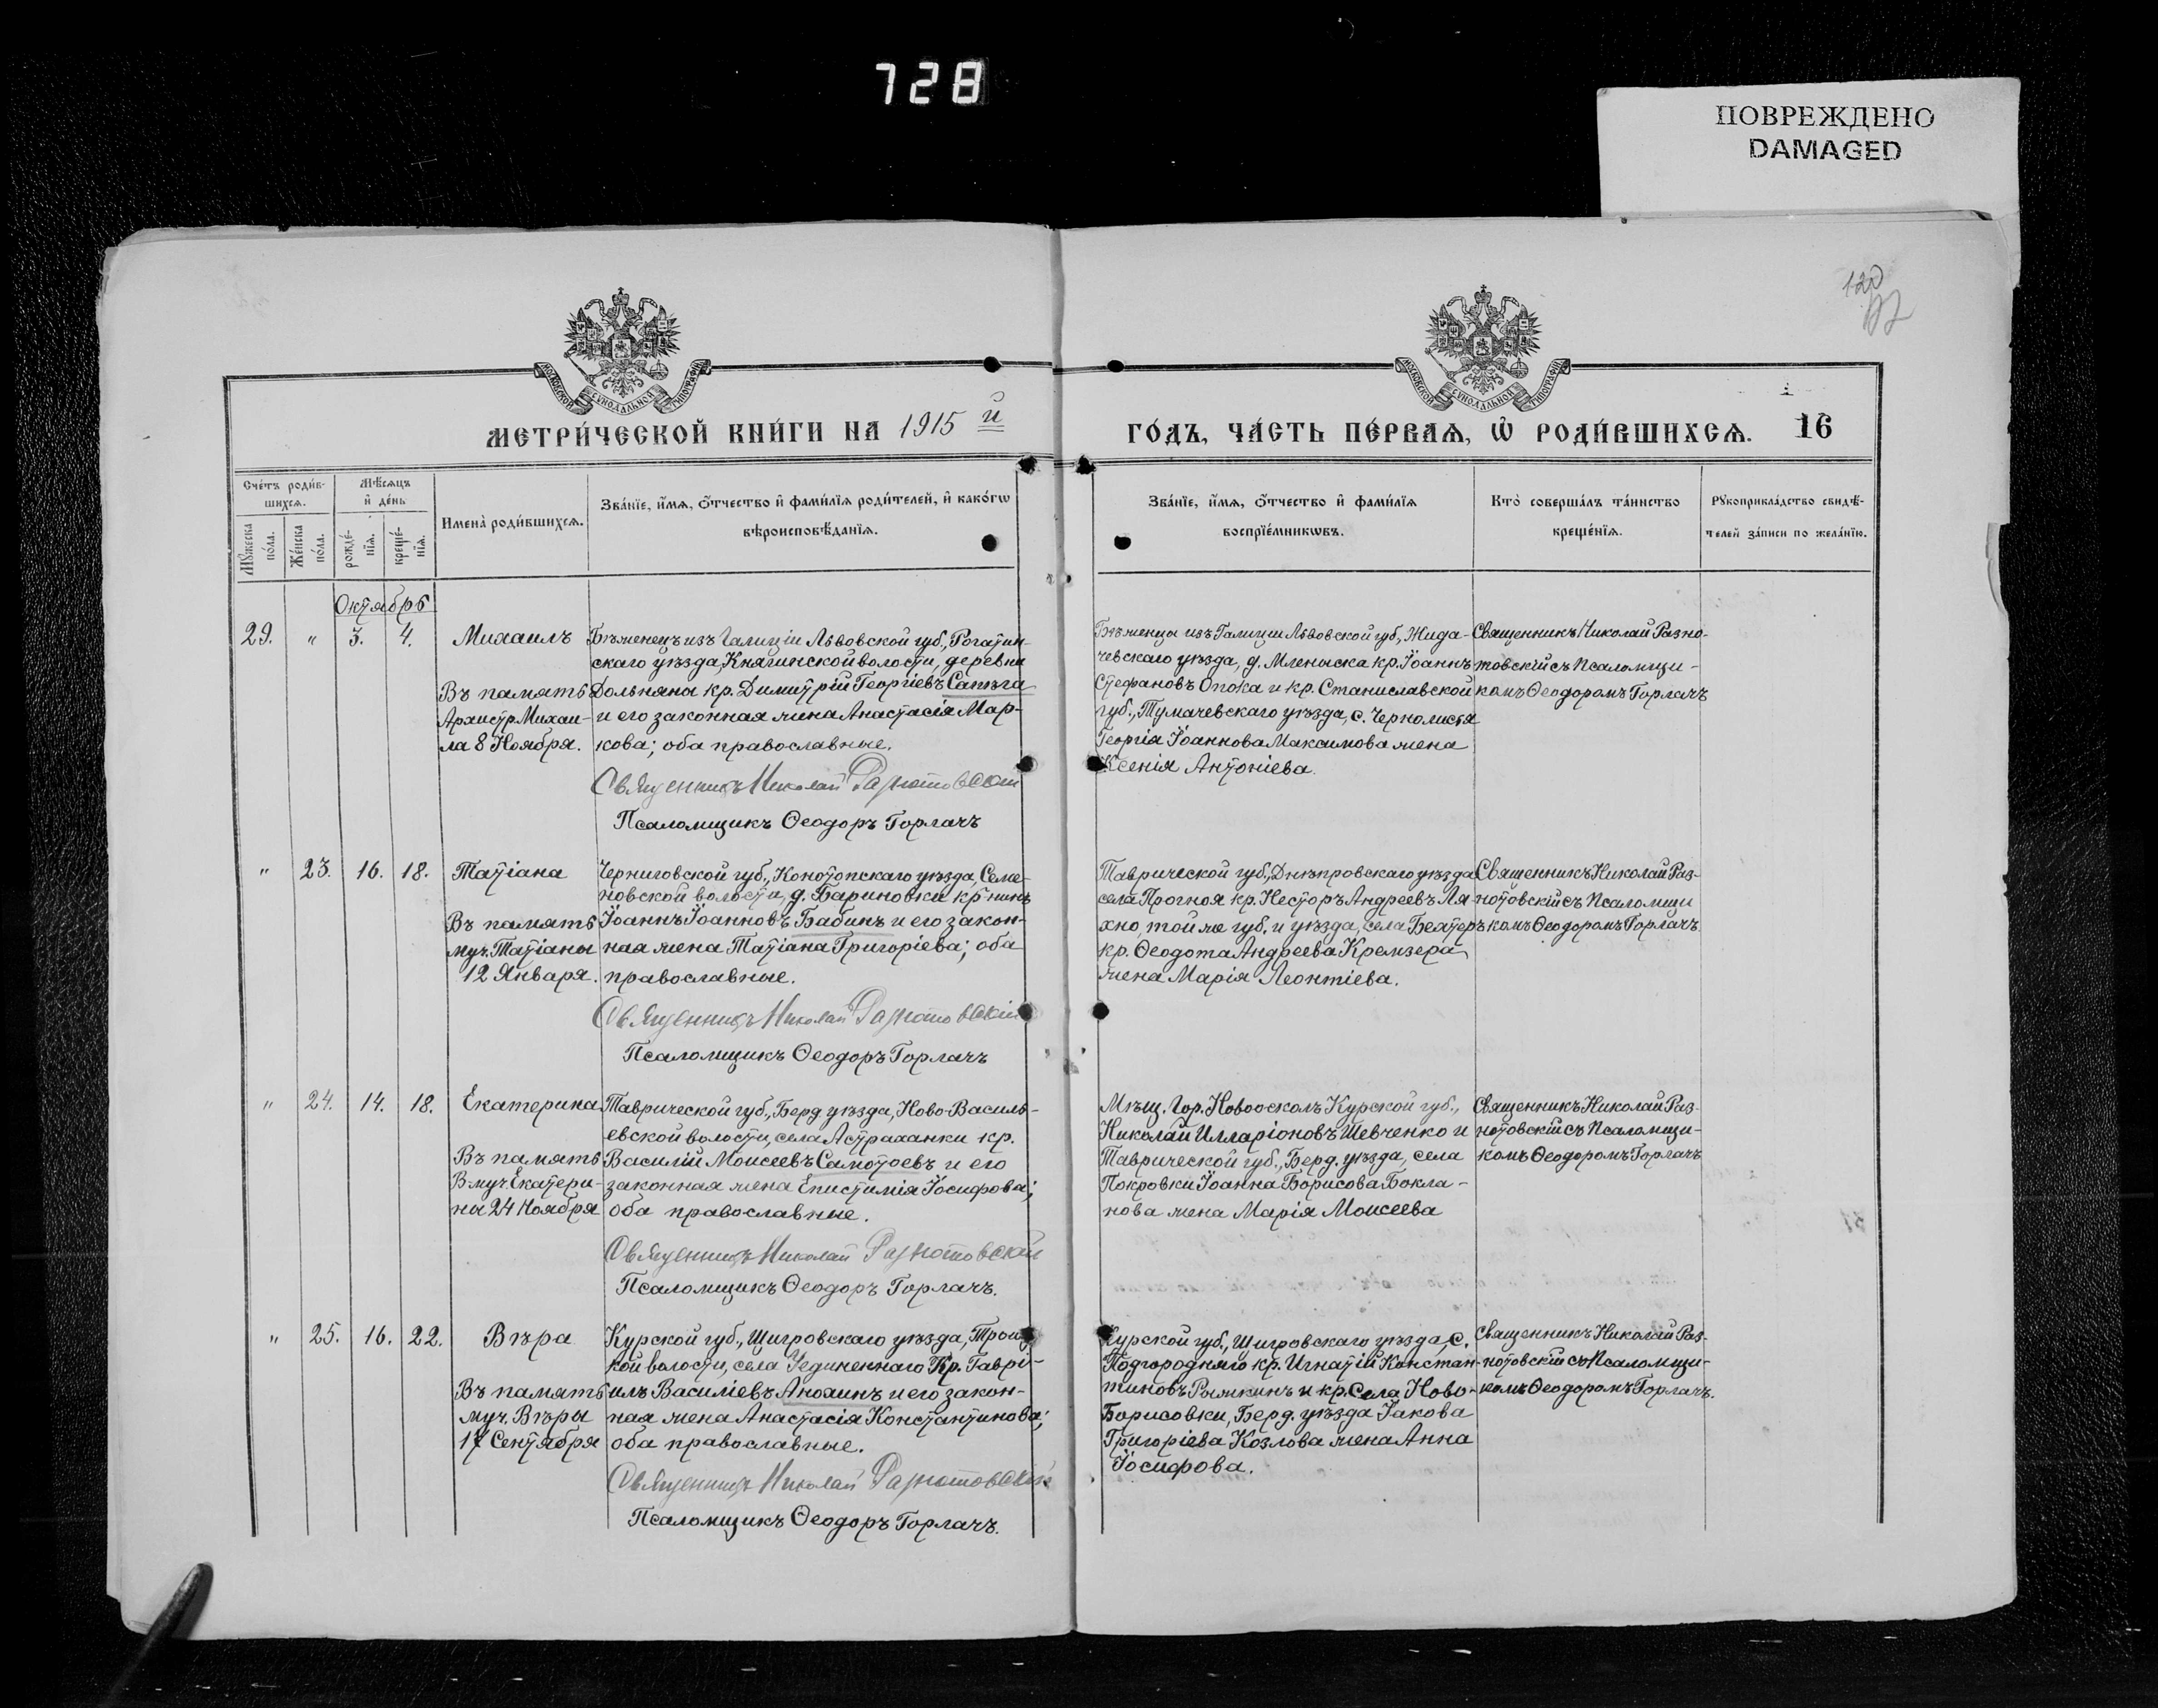 728
ПОВРЕЖДЕНО
DAMAGED
120
МОСКОВСКОЙ СѴНОДАЛЬНОЙ ТИПОГРАФІИ
МОСКОВСКОЙ СѴНОДАЛЬНОЙ ТИПОГРАФІИ
МЕТРИ́ЧЕСКОЙ КНИ́ГИ НА 1915 й
ГО́ДЪ, ЧА́СТЬ ПЕ́РВАѦ, Ѡ҆ РОДИ́ВШИХСѦ. 16
Сче́тъ роди́в-
шихсѧ.
Мꙋ́жеска по́ла.
Же́нска по́ла.
Мѣ́сѧцъ
и҆ де́нь
рожде́-нїѧ.
креще́-нїѧ.
Имена̀ роди́вшихсѧ.
Зва́нїе, и҆́мѧ, ѻ҆́тчество и҆ фами́лїѧ роди́телей, и҆ како́гѡ
вѣроисповѣ́данїѧ.
Зва́нїе, и҆́мѧ, ѻ҆́тчество и҆ фами́лїѧ
воспрїе́мникѡвъ.
Кто̀ соверша́лъ та́инство
креще́нїѧ.
Рꙋкоприкла́дство свидѣ́-
телей за́писи по жела́нїю.
Октябрь
29. " 3. 4.
Михаилъ
Въ память
Архистр. Михаи-
ла 8 Ноября.
Бѣженецъ изъ Галиціи Львовской губ., Рогатин-
скаго уѣзда, Княгинской волости, деревни
Дольняны кр. Димитрій Георгіевъ Сапѣга
и его законная жена Анастасія Мар-
кова; оба православные.
Священникъ Николай Разнотовскій
Псаломщикъ Ѳеодоръ Горлачъ
Бѣженцы изъ Галиціи Львовской губ., Жида-
чевскаго уѣзда, д. Млениска кр. Іоаннъ
Стефановъ Опока и кр. Станиславской
губ., Тумачевскаго уѣзда, с. Чернолистя
Георгія Іоаннова Максимова жена
Ксенія Антоніева.
Священникъ Николай Разно-
товскій съ Псаломщи-
комъ Ѳеодоромъ Горлачъ
" 23. 16. 18.
Татіана
Въ память
муч. Татіаны
12 Января.
Черниговской губ., Конотопскаго уѣзда, Семе-
новской волости, д. Бариновки кр-нинъ
Іоаннъ Іоанновъ Бабинъ и его закон-
ная жена Татіана Григоріева; оба
православные.
Священникъ Николай Разнотовскій
Псаломщикъ Ѳеодоръ Горлачъ
Таврической губ., Днѣпровскаго уѣзда
села Прогноя кр. Несторъ Андреевъ Ля-
хно, той же губ. и уѣзда, села Бехтеръ
кр. Ѳеодота Андреева Кремзера
жена Марія Леонтіева.
Священникъ Николай Раз-
нотовскій съ Псаломщи
комъ Ѳеодоромъ Горлачъ
" 24. 14. 18.
Екатерина
Въ память
В муч Екатери-
ны 24 Ноября
Таврической губ., Берд. уѣзда, Ново-Василь-
евской волости, села Астраханки кр.
Василій Моисеевъ Самотоевъ и его
законная жена Епистимія Іосифова;
оба православные.
Священникъ Николай Разнотовскій
Псаломщикъ Ѳеодоръ Горлачъ.
Мѣщ. Гор. Новоосколъ Курской губ.,
Николай Илларіоновъ Шевченко и
Таврической губ., Берд. уѣзда, села
Покровки Іоанна Борисова Бокла-
нова жена Марія Моисеева
Священникъ Николай Раз-
нотовскій съ Псаломщи-
комъ Ѳеодоромъ Горлачъ
" 25. 16. 22.
Вѣра
Въ память
муч. Вѣры
17 Сентября
Курской губ., Щигровскаго уѣзда, Троиц-
кой волости, села Уединеннаго Кр. Гаврі-
илъ Василіевъ Анохинъ и его закон-
ная жена Анастасія Константинова;
оба православные.
Священникъ Николай Разнотовскій
Псаломщикъ Ѳеодоръ Горлачъ.
Курской губ., Щигровскаго уѣзда, с.
Подгородняго кр. Игнатій Констан-
тиновъ Рыжкинъ и кр. Села Ново-
Борисовки, Берд. уѣзда Іакова
Григоріева Козлова жена Анна
Іосифова.
Священникъ Николай Раз-
нотовскій съ Псаломщи-
комъ Ѳеодоромъ Горлачъ.